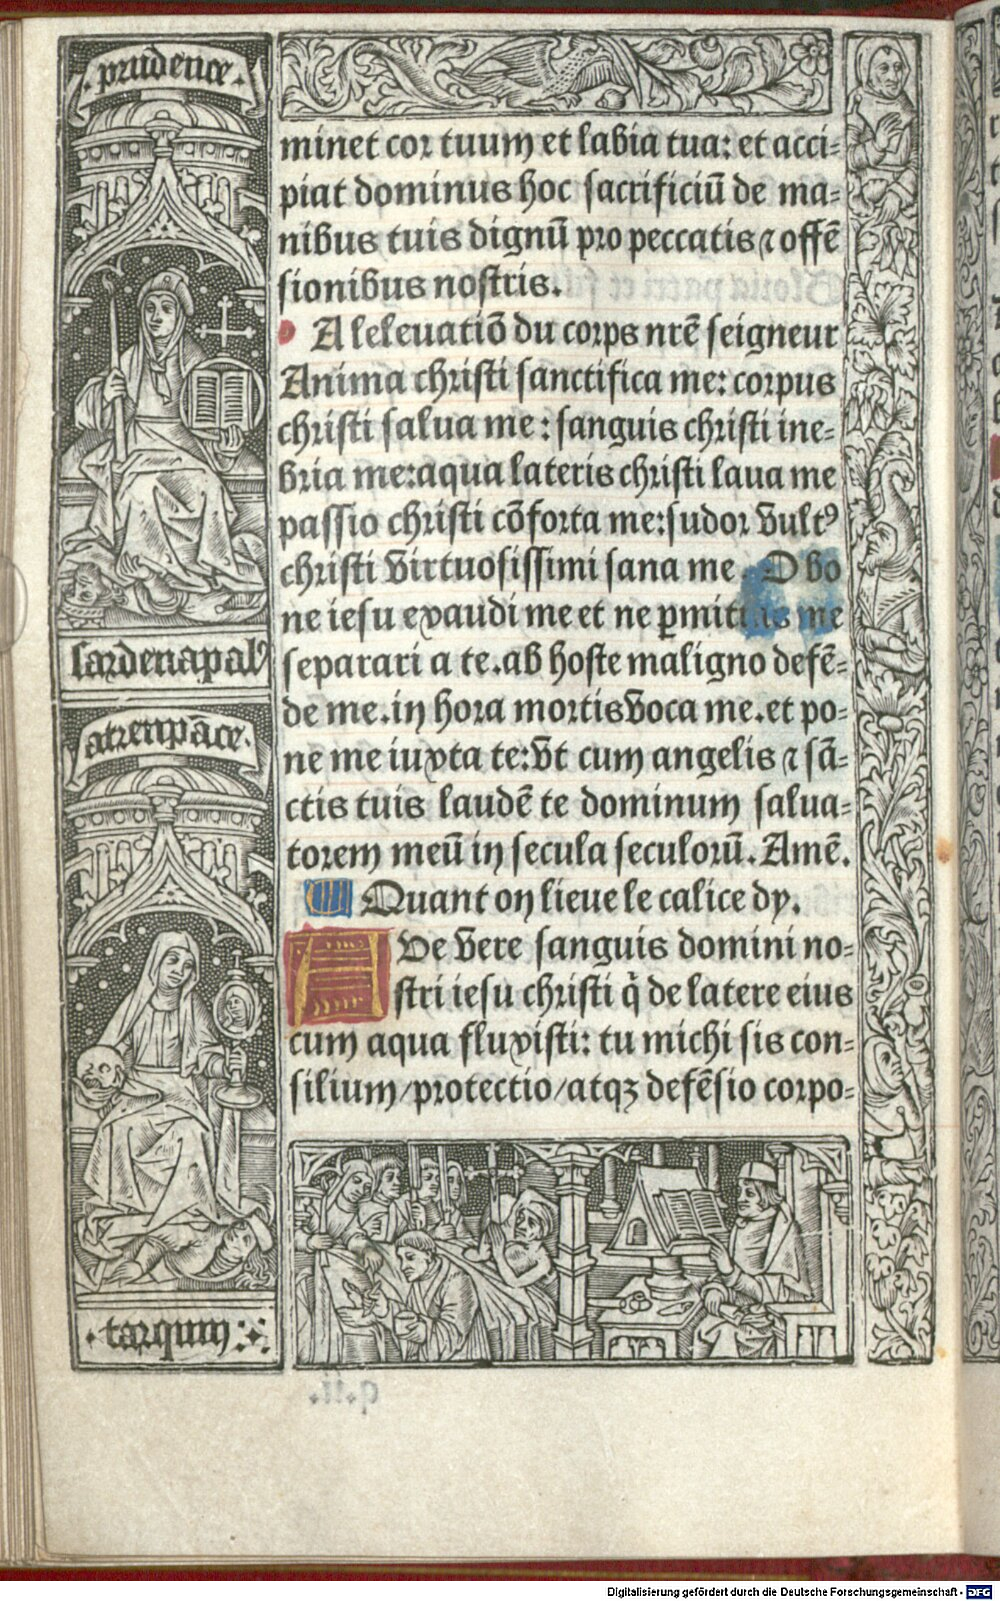 prudence.
minet cor tuum et labia tua: et acci-
piat dominus hoc sacrificiū de ma-
nibus tuis dignū pro peccatis ⁊ offē
sionibus nostris.
A leleuatiō du corps nrē seigneur
Anima christi sanctifica me: corpus
christi salua me: sanguis christi ine-
bria me:aqua lateris christi laua me
passio christi cōforta me:sudor vultꝰ
christi virtuosissimi sana me. O bo
ne iesu exaudi me et ne ꝑmittas me
separari a te.ab hoste maligno defē-
de me.in hora mortis voca me.et po-
ne me iuxta te:vt cum angelis ⁊ sā-
ctis tuis laudē te dominum salua-
torem meū in secula seculorū. Amē.
Quant on lieue le calice dy.
AVe vere sanguis domini no-
stri iesu christi q̄ de latere eius
cum aqua fluxisti: tu michi sis con-
silium/protectio/atqꝫ defēsio corpo-
sardenapalꝰ
atrenpāce.
tarquin
q.ii.
Digitalisierung gefördert durch die Deutsche Forschungsgemeinschaft - DFG